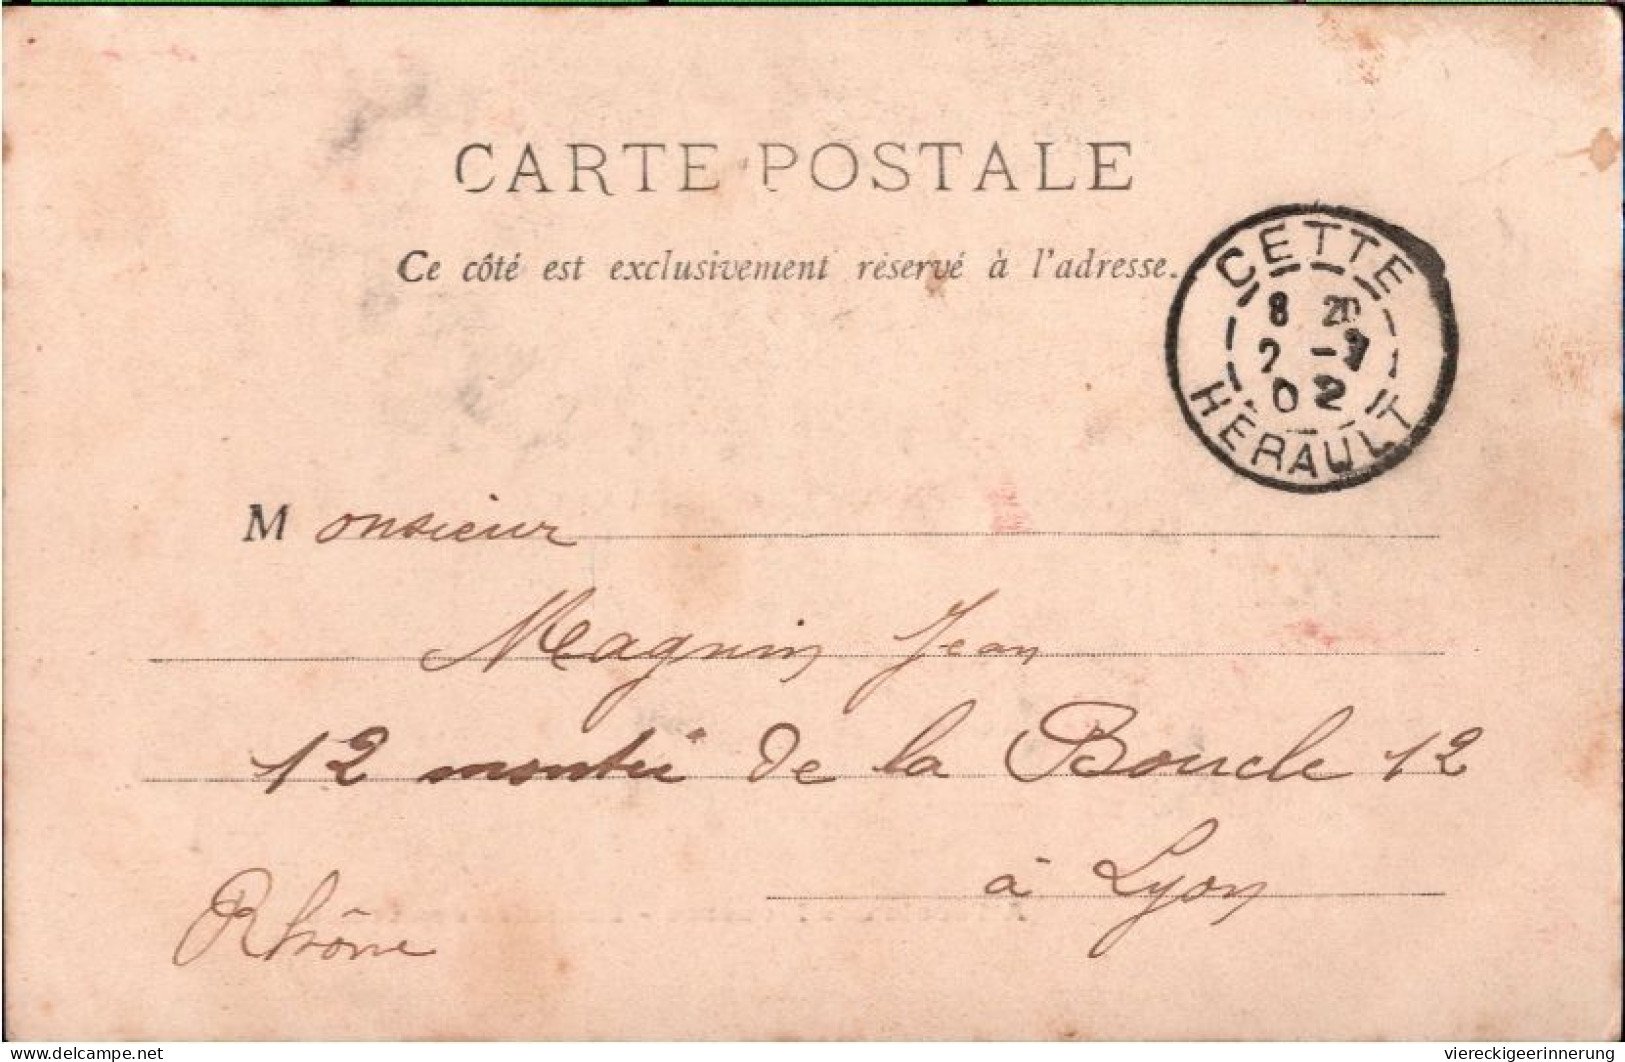 CARTE POSTALE
Ce côté est exclusivement réservé à l'adresse.
CETTE
8 20
02
HÉRAULT
Monsieur
Magnin Jean
12 montée de la Boucle 12
à Lyon
Rhône
www.delcampe.net
viereckigeerinnerung